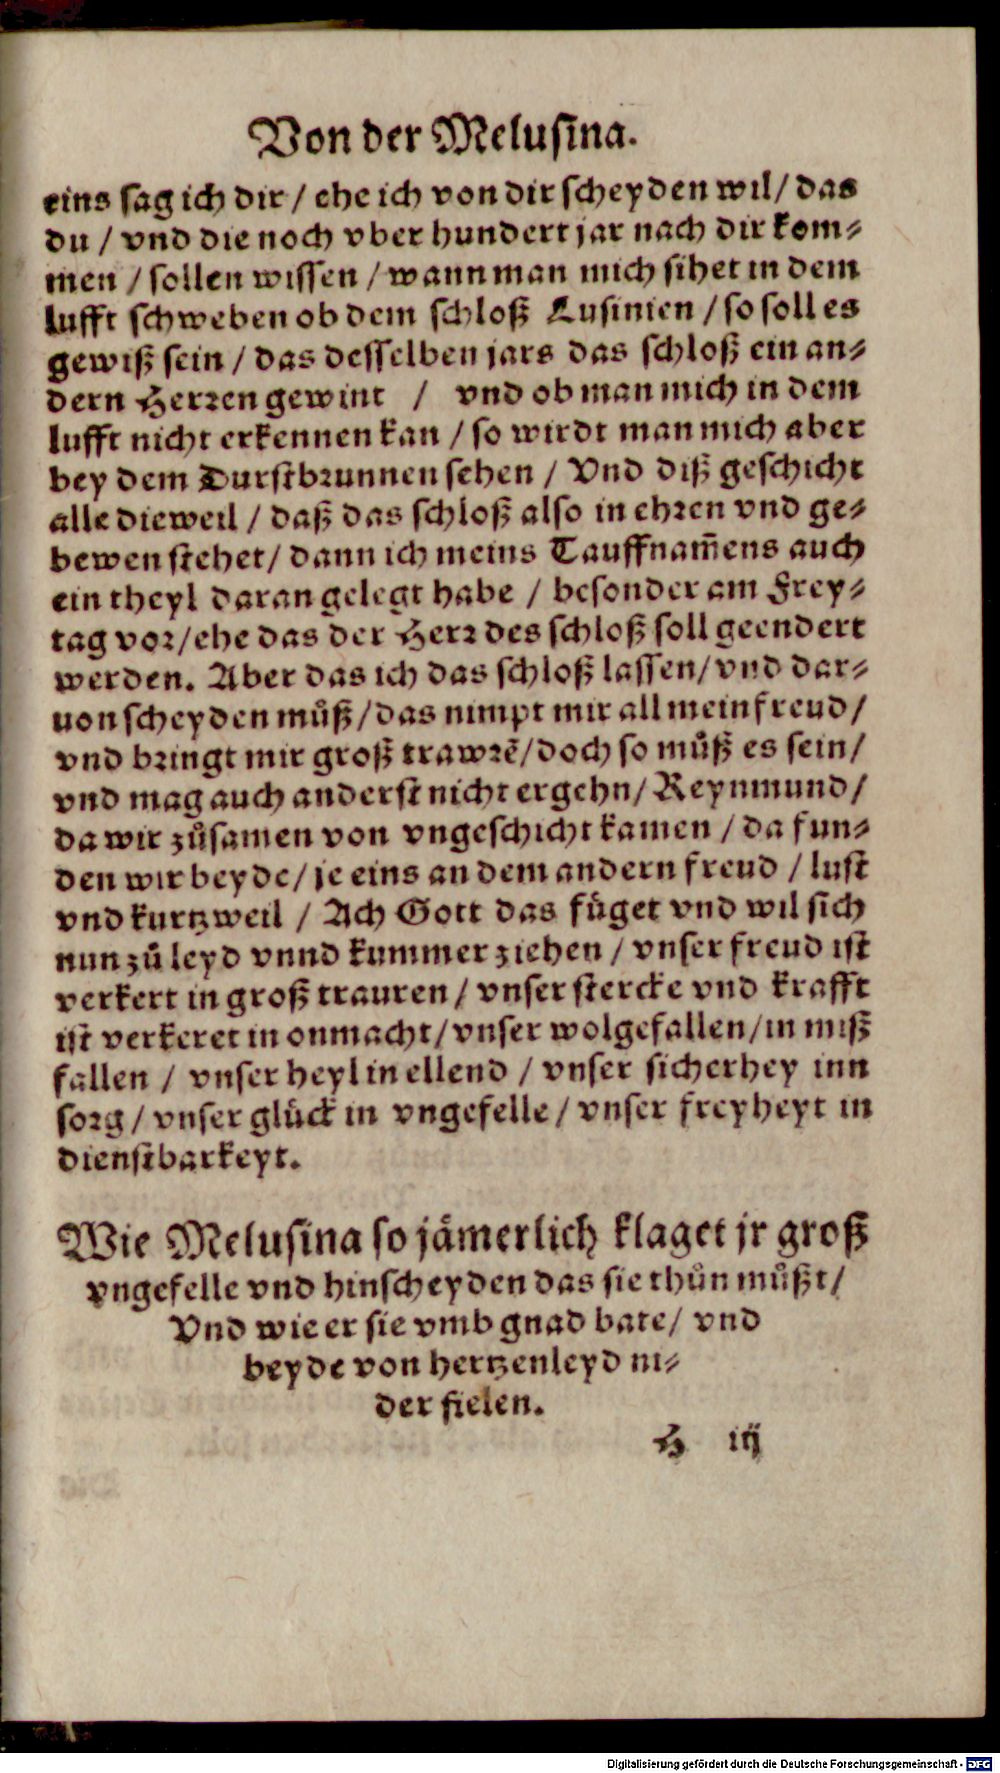 Von der Melusina.
eins sag ich dir / ehe ich von dir scheyden wil / das
du / vnd die noch vber hundert jar nach dir kom⸗
men / sollen wissen / wann man mich sihet in dem
lufft schweben ob dem schloß Lusinien / so soll es
gewiß sein / das desselben jars das schloß ein an⸗
dern Herren gewint / vnd ob man mich in dem
lufft nicht erkennen kan / so wirdt man mich aber
bey dem Durstbrunnen sehen / Vnd diß geschicht
alle dieweil / daß das schloß also in ehren vnd ge⸗
bewen stehet / dann ich meins Tauffnam̃ens auch
ein theyl daran gelegt habe / besonder am Frey⸗
tag vor / ehe das der Herr des schloß soll geendert
werden. Aber das ich das schloß lassen / vnd dar⸗
uon scheyden můß / das nimpt mir all mein freud /
vnd bringt mir groß trawrẽ / doch so můß es sein /
vnd mag auch anderst nicht ergehn / Reymund /
da wir zůsamen von vngeschicht kamen / da fun⸗
den wir beyde / je eins an dem andern freud / lust
vnd kurtzweil / Ach Gott das füget vnd wil sich
nun zů leyd vnnd kummer ziehen / vnser freud ist
verkert in groß trauren / vnser stercke vnd krafft
ist verkeret in onmacht / vnser wolgefallen / in miß
fallen / vnser heyl in ellend / vnser sicherhey inn
sorg / vnser glück in vngefelle / vnser freyheyt in
dienstbarkeyt.
Wie Melusina so jämerlich klaget jr groß
vngefelle vnd hinscheyden das sie thůn můßt /
Vnd wie er sie vmb gnad bate / vnd
beyde von hertzenleyd ni⸗
der fielen.
H iij
Digitalisierung gefördert durch die Deutsche Forschungsgemeinschaft - DFG